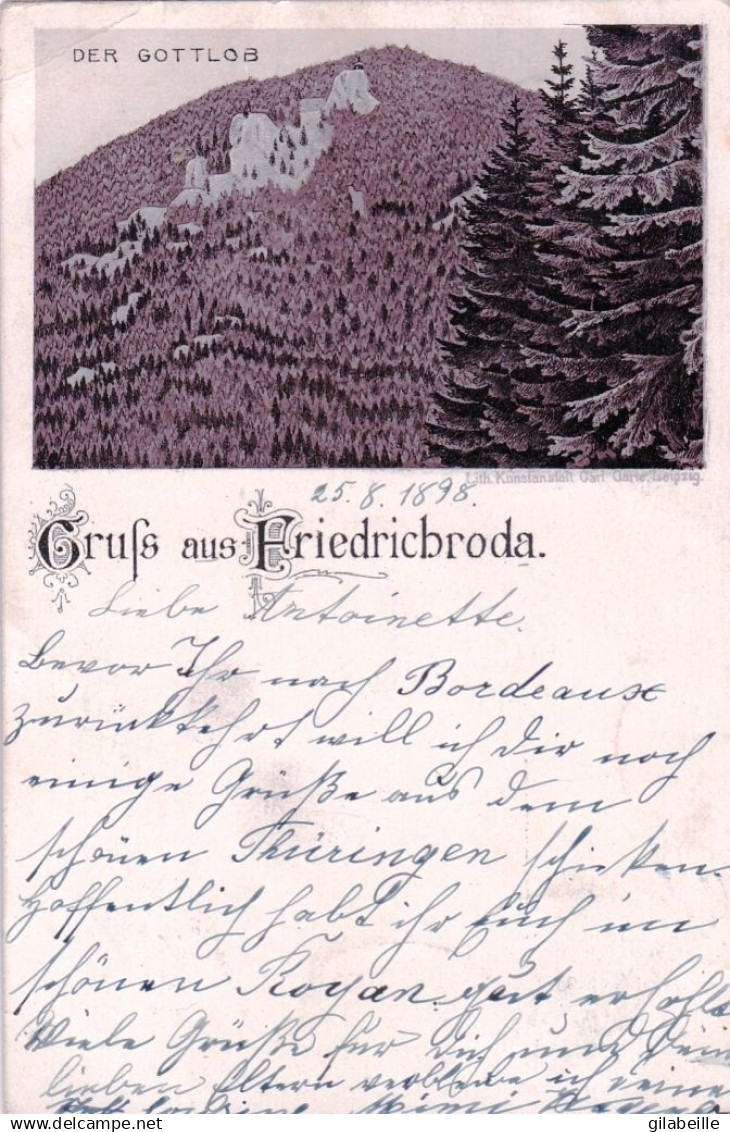 DER GOTTLOB
Lith. Kunstanstalt Carl Garte, Leipzig.
25.8.1898.
Gruſs aus Friedrichroda.
Liebe Antoinette.
Bevor Ihr nach Bordeaux
zurückkehrt will ich Dir noch
einige Grüße aus dem
schönen Thüringen schicken.
Hoffentlich habt ihr Euch im
schönen Royan gut erholt
Viele Grüße für dich und Deine
lieben Eltern verbleibe ich
Mimi
gilabeille